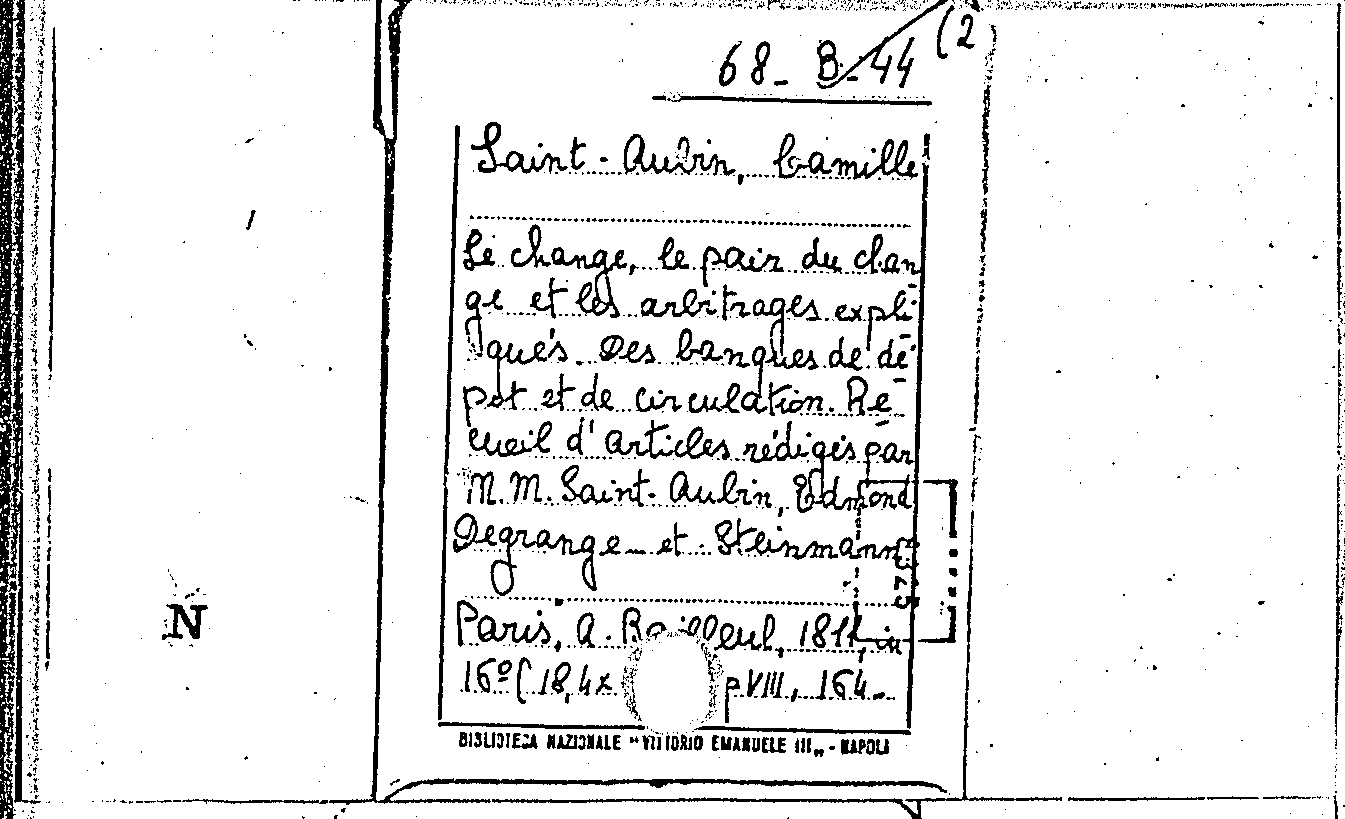 68-B-44 (2
Saint-Aubin, Camille
Le change, le pair du chan
ge et les arbitrages expli-
qués. Des banques de dé-
pot et de circulation. Re-
cueil d'articles rédigés par
M.M. Saint-Aubin, Edmond
Degrange et Steinmann
Paris, A. Bailleul, 1811, in
16º (18,4x p VIII, 164.
BIBLIOTECA NAZIONALE "VITTORIO EMANUELE III„ - NAPOLI
N